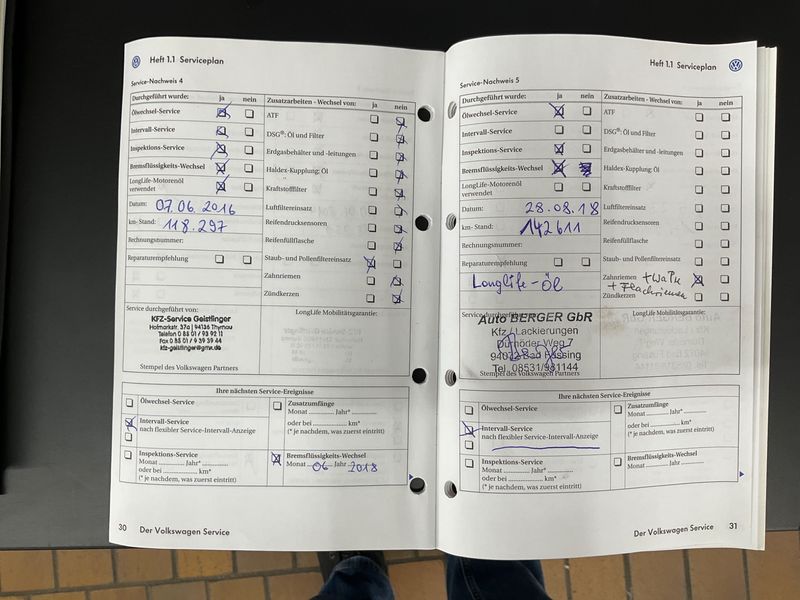 Heft 1.1 Serviceplan
Service-Nachweis 4
Durchgeführt wurde: ja nein
Ölwechsel-Service
Intervall-Service
Inspektions-Service
Bremsflüssigkeits-Wechsel
LongLife-Motorenöl
verwendet
Datum: 07.06.2016
km-Stand: 118.297
Rechnungsnummer:
Reparaturempfehlung
Zusatzarbeiten - Wechsel von: ja nein
ATF
DSG®: Öl und Filter
Erdgasbehälter und -leitungen
Haldex-Kupplung: Öl
Kraftstofffilter
Luftfiltereinsatz
Reifendrucksensoren
Reifenfüllflasche
Staub- und Pollenfiltereinsatz
Zahnriemen
Zündkerzen
Service durchgeführt von:
KFZ-Service Geistlinger
Hofmarkstr. 37a | 94136 Thyrnau
Telefon 0 85 01 / 93 92 11
Fax 0 85 01 / 9 39 39 44
kfz-geistlinger@gmx.de
Stempel des Volkswagen Partners
LongLife Mobilitätsgarantie:
Ihre nächsten Service-Ereignisse
Ölwechsel-Service
Intervall-Service
nach flexibler Service-Intervall-Anzeige
Inspektions-Service
Monat Jahr*
oder bei km*
(* je nachdem, was zuerst eintritt)
Zusatzumfänge
Monat Jahr*
oder bei km*
(* je nachdem, was zuerst eintritt)
Bremsflüssigkeits-Wechsel
Monat 06 Jahr 2018
30 Der Volkswagen Service
Heft 1.1 Serviceplan
Service-Nachweis 5
Durchgeführt wurde: ja nein
Ölwechsel-Service
Intervall-Service
Inspektions-Service
Bremsflüssigkeits-Wechsel
LongLife-Motorenöl
verwendet
Datum: 28.08.18
km-Stand: 142611
Rechnungsnummer:
Reparaturempfehlung
Longlife-Öl
Zusatzarbeiten - Wechsel von: ja nein
ATF
DSG®: Öl und Filter
Erdgasbehälter und -leitungen
Haldex-Kupplung: Öl
Kraftstofffilter
Luftfiltereinsatz
Reifendrucksensoren
Reifenfüllflasche
Staub- und Pollenfiltereinsatz
Zahnriemen + WaPu
+ Flachriemen
Zündkerzen
Service durchgeführt von:
Auto BERGER GbR
Kfz / Lackierungen
Durnöder Weg 7
94072 Bad Füssing
Tel. 08531/981144
Stempel des Volkswagen Partners
LongLife Mobilitätsgarantie:
Ihre nächsten Service-Ereignisse
Ölwechsel-Service
Intervall-Service
nach flexibler Service-Intervall-Anzeige
Inspektions-Service
Monat Jahr*
oder bei km*
(* je nachdem, was zuerst eintritt)
Zusatzumfänge
Monat Jahr*
oder bei km*
(* je nachdem, was zuerst eintritt)
Bremsflüssigkeits-Wechsel
Monat Jahr
Der Volkswagen Service 31